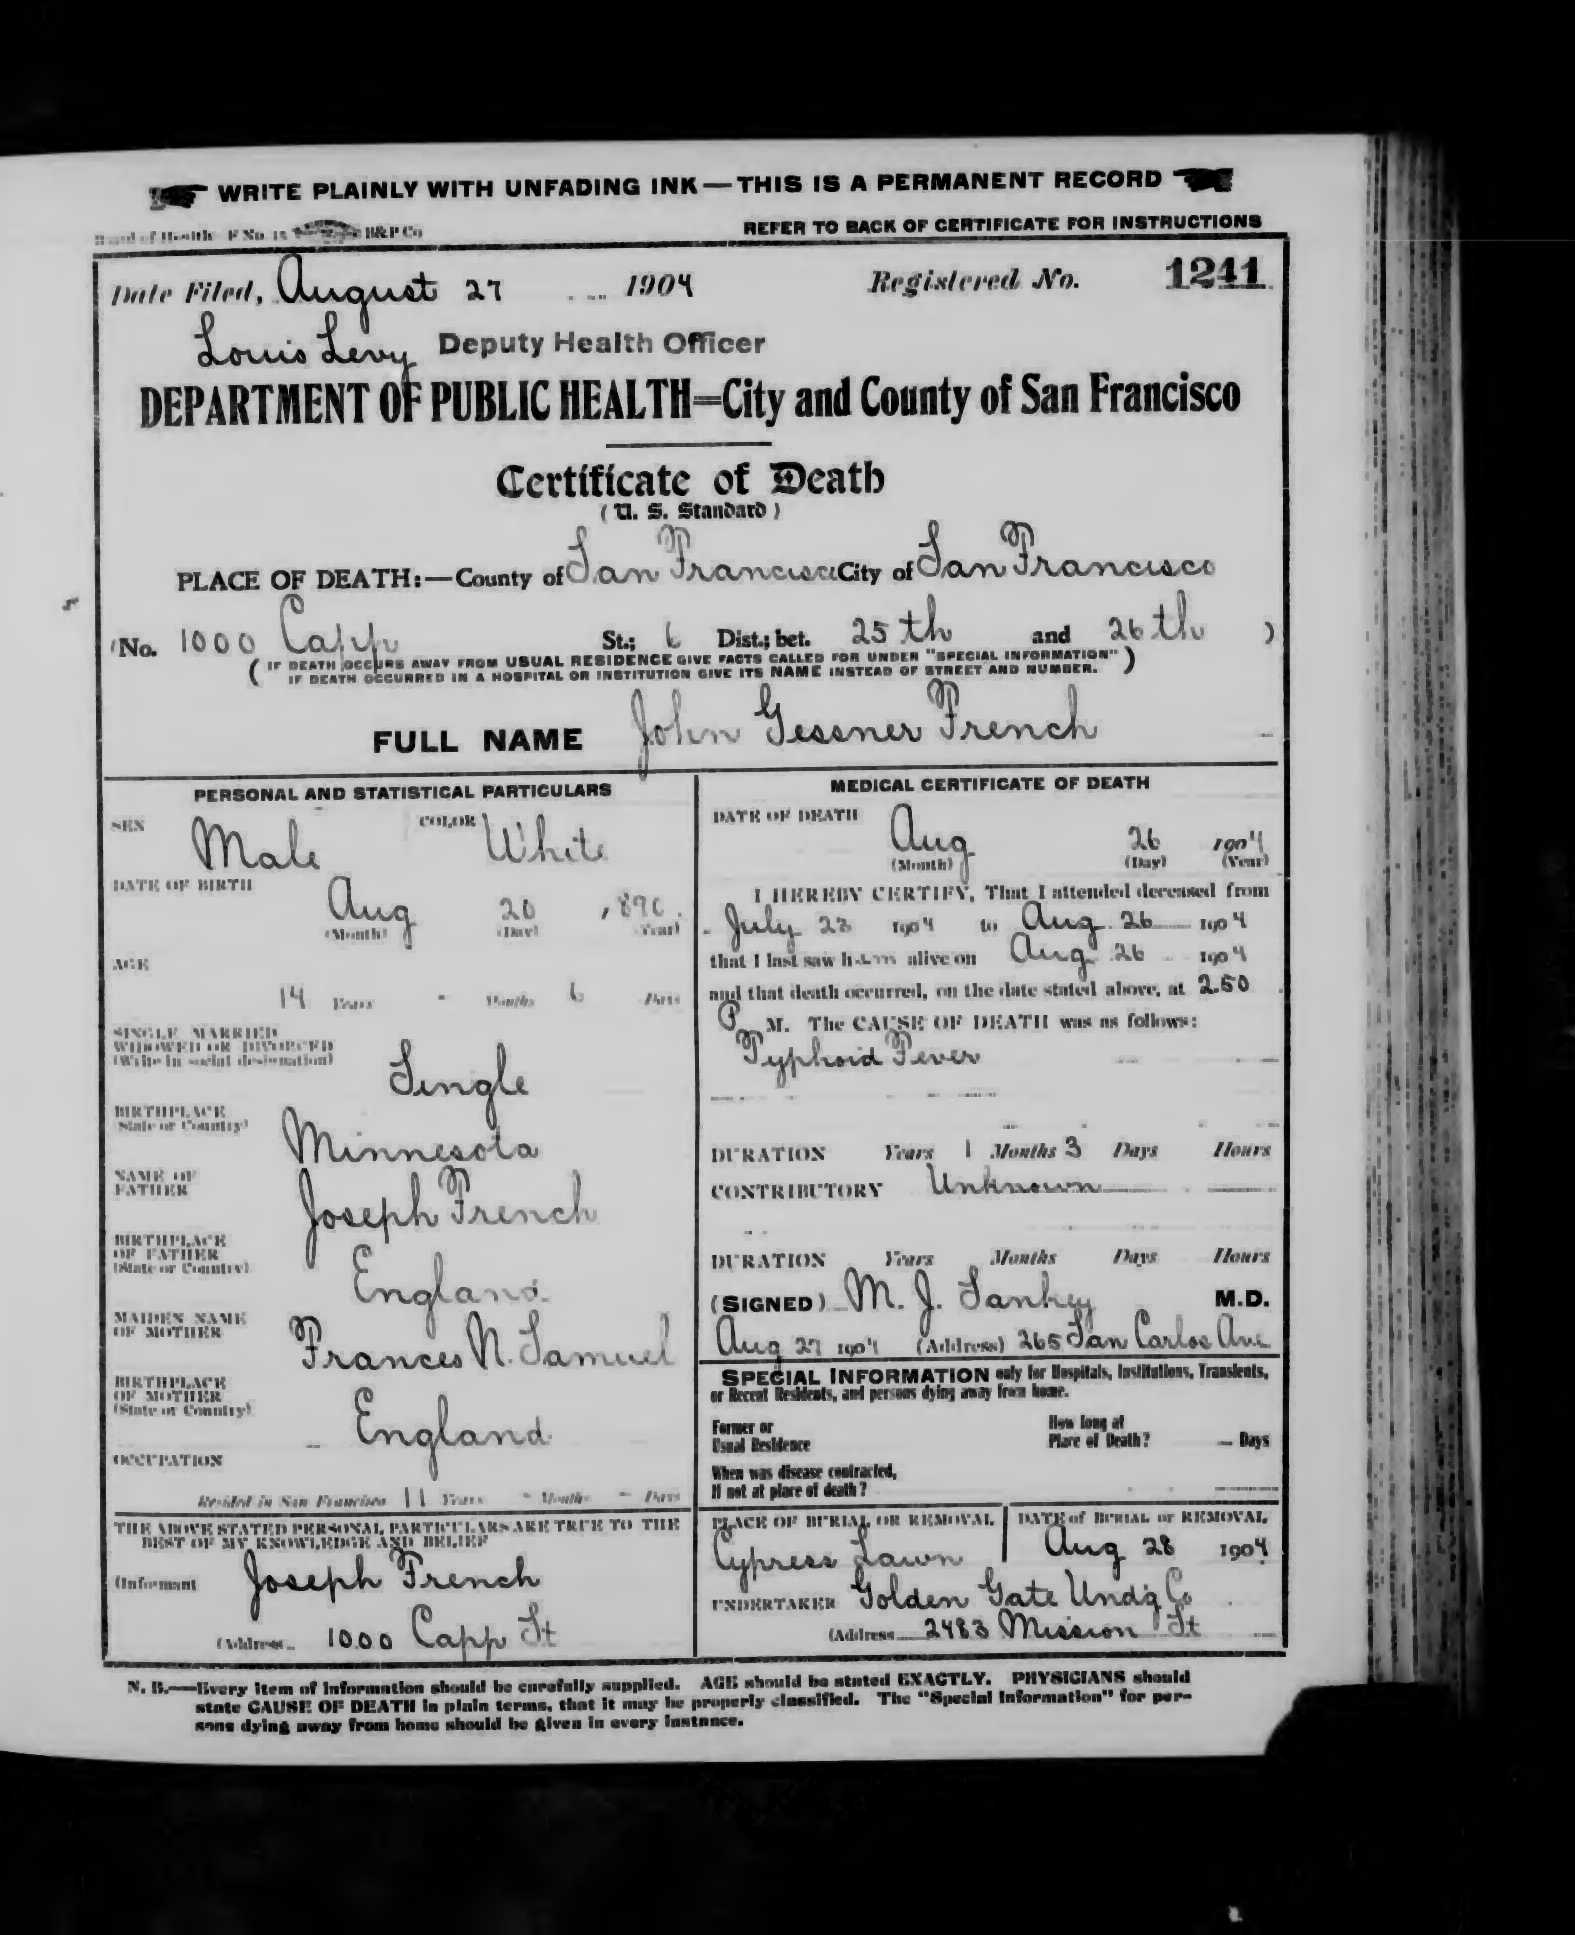 WRITE PLAINLY WITH UNFADING INK—THIS IS A PERMANENT RECORD
Board of Health F No. 15 B&P Co
REFER TO BACK OF CERTIFICATE FOR INSTRUCTIONS
Date Filed, August 27 1904 Registered No. 1241
Louis Levy Deputy Health Officer
DEPARTMENT OF PUBLIC HEALTH=City and County of San Francisco
Certificate of Death
(U. S. Standard)
PLACE OF DEATH:—County of San Francisco City of San Francisco
(No. 1000 Capp St.; 6 Dist.; bet. 25th and 26th )
(IF DEATH OCCURS AWAY FROM USUAL RESIDENCE GIVE FACTS CALLED FOR UNDER "SPECIAL INFORMATION"
IF DEATH OCCURRED IN A HOSPITAL OR INSTITUTION GIVE ITS NAME INSTEAD OF STREET AND NUMBER.)
FULL NAME John Gessner French
PERSONAL AND STATISTICAL PARTICULARS
SEX Male COLOR White
DATE OF BIRTH
Aug 20 1890
(Month) (Day) (Year)
AGE
14 Years - Months 6 Days
SINGLE MARRIED
WIDOWED OR DIVORCED
(Write in social designation)
Single
BIRTHPLACE
(State or Country)
Minnesota
NAME OF
FATHER
Joseph French
BIRTHPLACE
OF FATHER
(State or Country)
England
MAIDEN NAME
OF MOTHER
Frances N. Samuel
BIRTHPLACE
OF MOTHER
(State or Country)
England
OCCUPATION
Resided in San Francisco 11 Years - Months - Days
THE ABOVE STATED PERSONAL PARTICULARS ARE TRUE TO THE
BEST OF MY KNOWLEDGE AND BELIEF
(Informant Joseph French
(Address 1000 Capp St
MEDICAL CERTIFICATE OF DEATH
DATE OF DEATH
Aug 26 1904
(Month) (Day) (Year)
I HEREBY CERTIFY, That I attended deceased from
July 23 1904 to Aug 26 1904
that I last saw him alive on Aug 26 1904
and that death occurred, on the date stated above, at 2.50
P M. The CAUSE OF DEATH was as follows:
Typhoid Fever
DURATION Years 1 Months 3 Days Hours
CONTRIBUTORY Unknown
DURATION Years Months Days Hours
(SIGNED) M. J. Sankey M.D.
Aug 27 1904 (Address) 265 San Carlos Ave
SPECIAL INFORMATION only for Hospitals, Institutions, Transients,
or Recent Residents, and persons dying away from home.
Former or
Usual Residence
How long at
Place of Death? — Days
When was disease contracted,
If not at place of death?
PLACE OF BURIAL OR REMOVAL
Cypress Lawn
DATE of BURIAL or REMOVAL
Aug 28 1904
UNDERTAKER Golden Gate Undg Co
(Address 2483 Mission St
N. B.—Every item of information should be carefully supplied. AGE should be stated EXACTLY. PHYSICIANS should
state CAUSE OF DEATH in plain terms, that it may be properly classified. The "Special Information" for per-
sons dying away from home should be given in every instance.